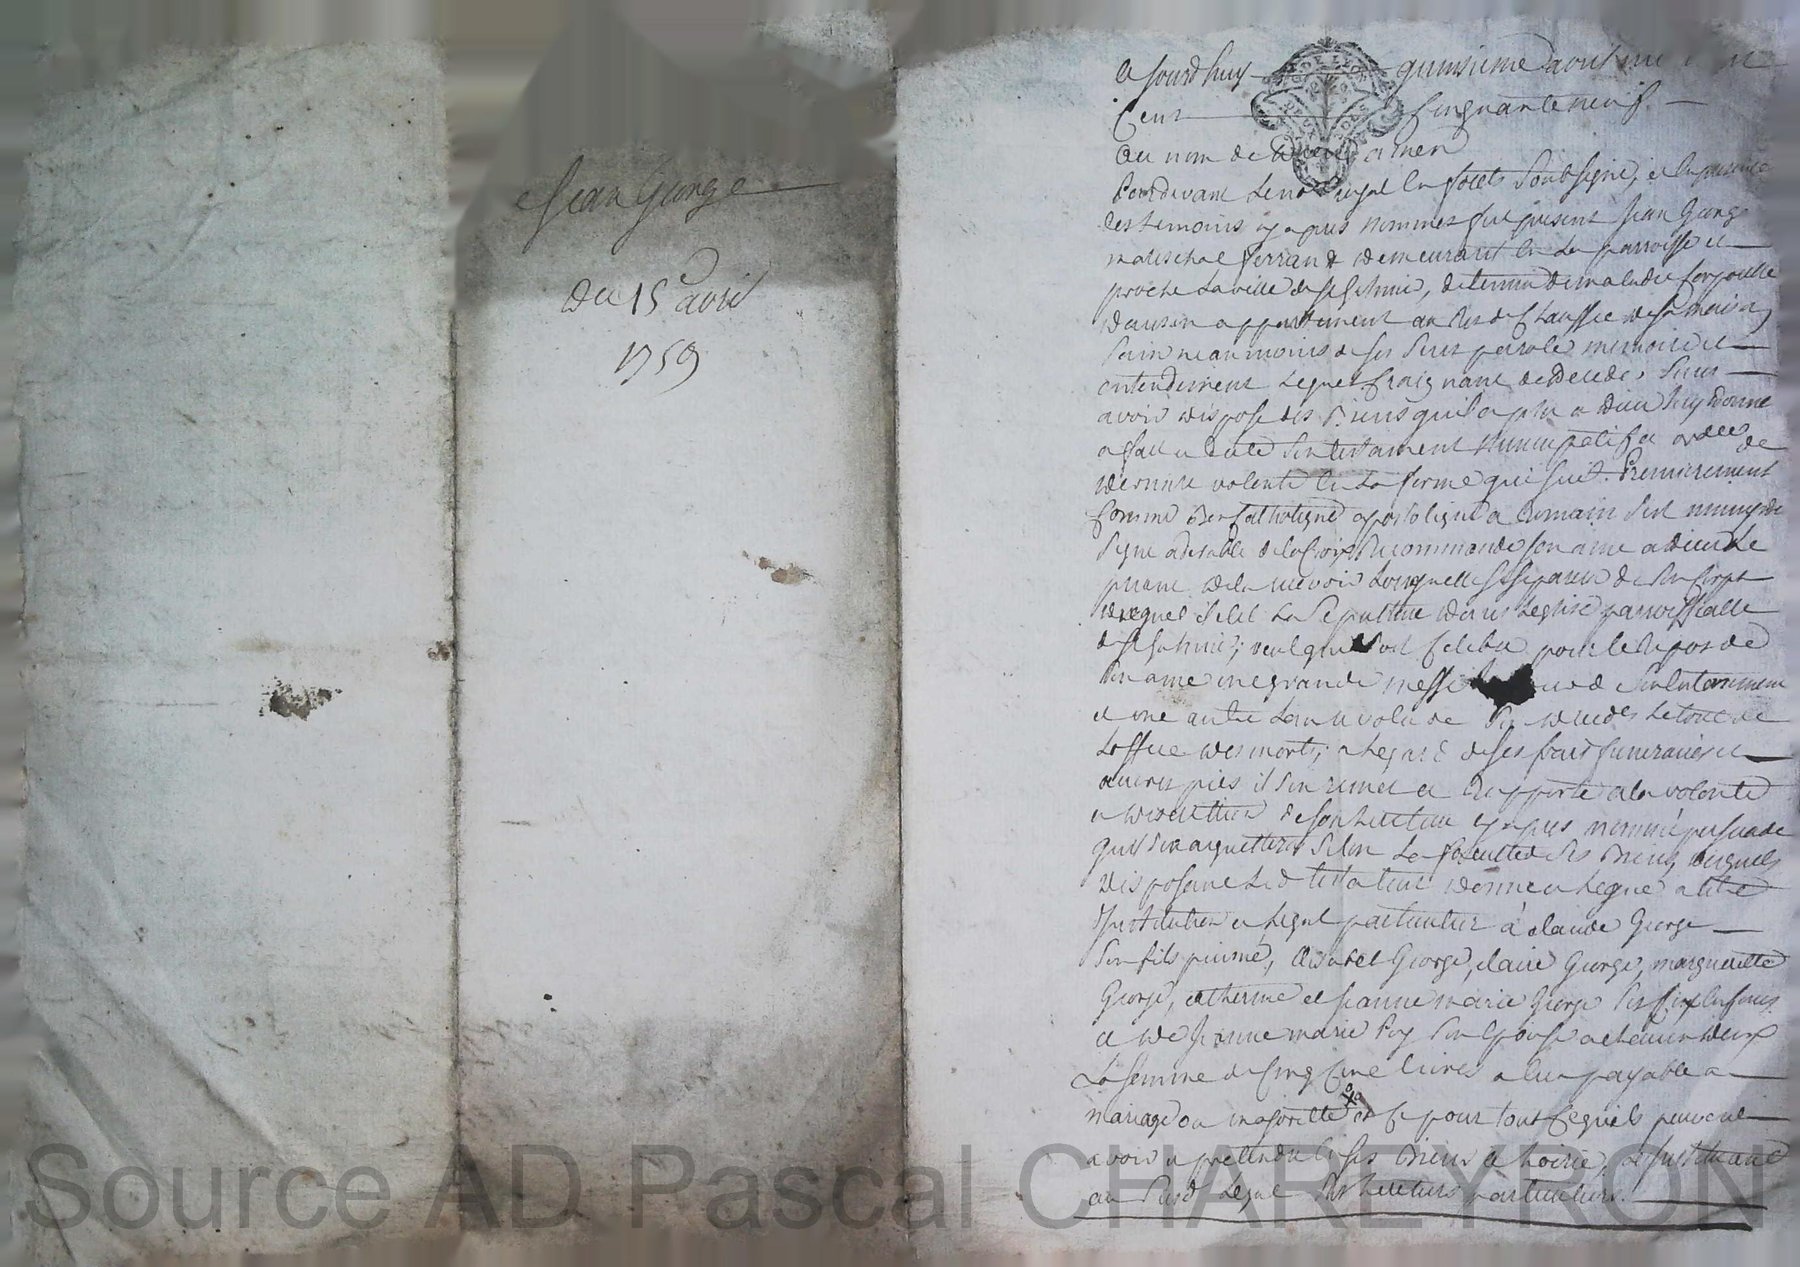 Jean George
du 15e avril
1759
Ce jourd'huy quinsieme avril mil
Cent Cinquante neuf
Au nom de Dieu amen
Pardevant Le no.re royal En forets Soubsigné, et En presence
des temoins cy apres nommes fut present Jean George
mareschal ferrant demeurant En La parroisse et
proche La ville de , detenu de maladie Corporelle
dans un appartement au Res de Chaussée de sa maison
Sain neanmoins de ses Sens parole memoire et
entendement Lequel Craignant de deceder Sans
avoir disposé des Biens qu'il a plu a dieu luy donné
a fait et dicté Son testament nuncupatif et ordce de
derniere volonté En La forme que suit. Premierement
Comme Bon Catholique apostolique et Romain S'est muny du
Signe adorable de la Croix, Recommandé son ame a dieu Le
priant de la recevoir Lorsqu'elle se separera de Son Corps
duquel il elit La Sepulture dans L'eglise parroissialle
de ; veut que Soit Celebré pour le Repos de
Son ame une grande messe Son Enterrement
et une autre L'an revolu de Son deces Le tout de
L'office des morts; a L'egard de ses frais funeraires et
œuvres pies il S'en remet et Rapporte a la volonté
et discrettion de son heritier cy apres nommé persuadé
qu'il S'en acquittera Selon La faculté de ses Biens, desquels
disposant Led testateur donne et Legue a titre
d'Institution et Legat particulier à Claude George
Son fils puisné, Elisabet George, Claire George, margueritte
George, Catherine et Jeanne marie George Ses Six Enfans
et de Jeanne marie Son Epouse a chacun d'eux
La somme de Cinq Cent livres a Eux payable a
mariage ou majorité et Ce pour tout Ce qu'ils peuvent
avoir a pretendre En ses Biens et hoirie, Les Instituant
au Susd Legat Ses heritiers particuliers.
Source AD Pascal CHAREYRON